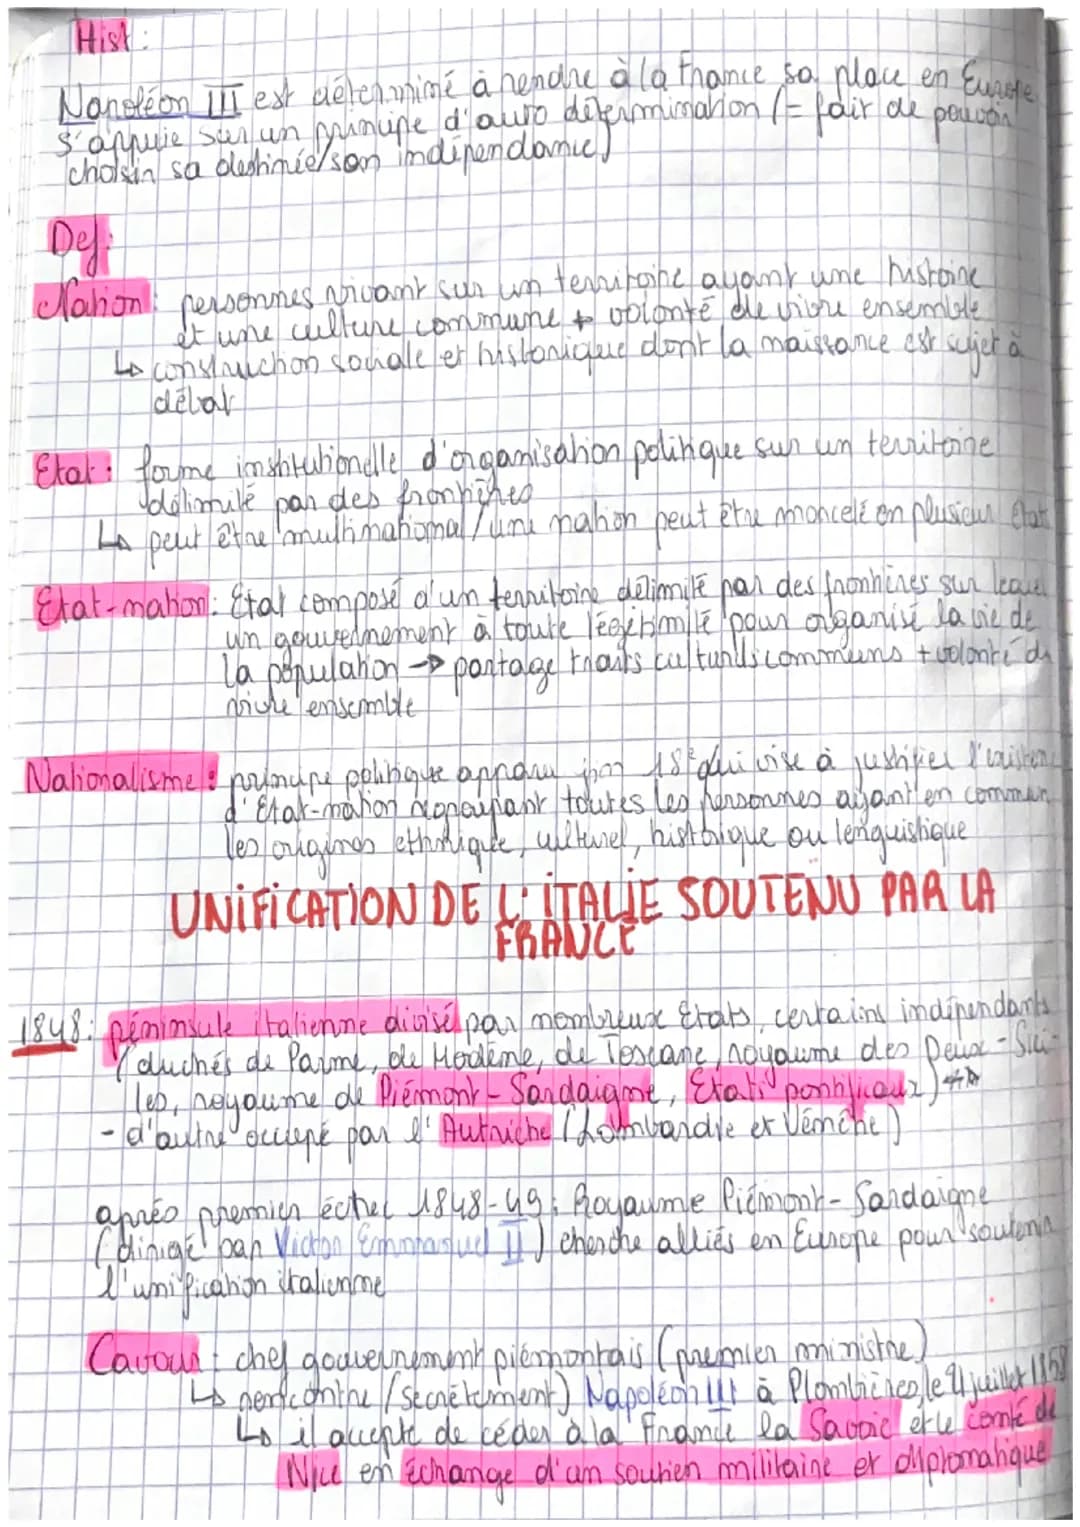 Hist :
Napoléon III est déterminé à rendre à la France sa place en Europe
s'appuie sur un principe d'auto détermination (= fait de pouvoir
choisir sa destinée/son indépendance)
Def :
Nation : personnes vivant sur un territoire ayant une histoire
et une culture commune + volonté de vivre ensemble
↳ construction sociale et historique dont la naissance est sujet à
débat
Etat : forme institutionelle d'organisation politique sur un territoire
délimité par des frontières
↳ peut être multinational / une nation peut être morcelé en plusieur Etat
Etat-nation : Etat composé d'un territoire délimité par des frontières sur lequel
un gouvernement à toute légitimité pour organisé la vie de
la population → partage traits culturels communs + volonté de
vivre ensemble
Nationalisme : principe politique apparu fin 18e qui vise à justifier l'existen
d'Etat-nation regroupant toutes les personnes ayant en commun
les origines ethnique, culturel, historique ou lenguistique
UNIFICATION DE L'ITALIE SOUTENU PAR LA
FRANCE
1848 : péninsule italienne divisé par nombreux Etats, certains indépendants
(duchés de Parme, de Modène, de Toscane, royaume des Deux-Sici-
les, royaume de Piémont-Sardaigne, Etats pontificaux)
- d'autre occupé par l'Autriche (Lombardie et Vénétie)
après premier échec 1848-49 : Royaume Piémont-Sardaigne
(dirigé par Victor Emmanuel II) cherche alliés en Europe pour soutenir
l'unification italienne
Cavour : chef gouvernement piémontais (premier ministre)
↳ rencontre (secrètement) Napoléon III à Plombières, le 21 juillet 1858
↳ il accepte de céder à la France la Savoie et le comté de
Nice en échange d'un soutien militaire et diplomatique